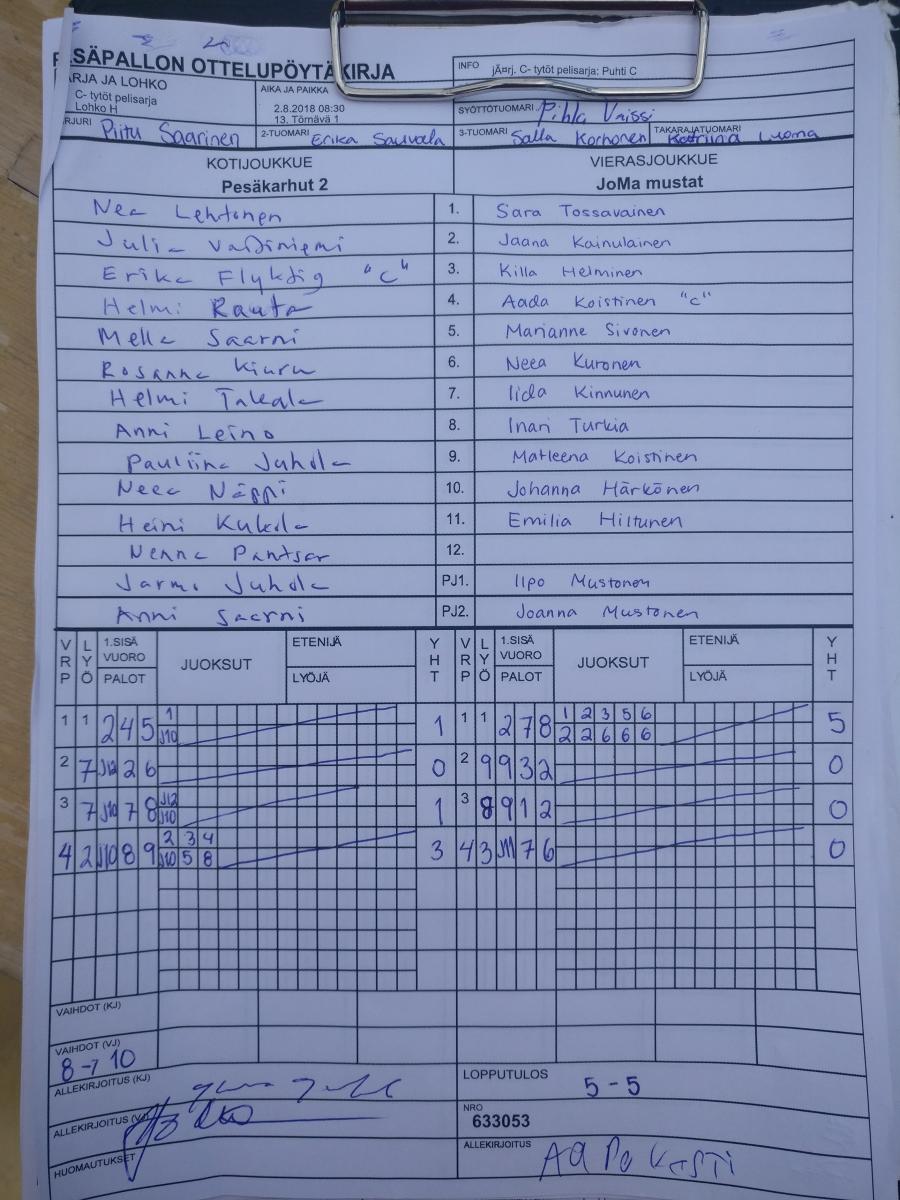 SÄPALLON OTTELUPÖYTÄKIRJA
INFO jÄ¤rj. C- tytöt pelisarja: Puhti C
ARJA JA LOHKO
C- tytöt pelisarja
Lohko H
AIKA JA PAIKKA
2.8.2018 08:30
13. Törnävä 1
SYÖTTÖTUOMARI Pihla Vaissi
ARJURI Piitu Saarinen 2-TUOMARI Erika Sauvala 3-TUOMARI Salla Korhonen TAKARAJATUOMARI Katriina Luoma
KOTIJOUKKUE VIERASJOUKKUE
Pesäkarhut 2 JoMa mustat
Nea Lehtonen 1. Sara Tossavainen
Julia Vainiemi 2. Jaana Kainulainen
Erika Flyktig "C" 3. Killa Helminen
Helmi Rauta 4. Aada Koistinen "C"
Mella Saarni 5. Marianne Sivonen
Rosanna Kiuru 6. Neea Kuronen
Helmi Takala 7. Iida Kinnunen
Anni Leino 8. Inari Turkia
Pauliina Juhola 9. Matleena Koistinen
Neea Näppi 10. Johanna Härkönen
Heini Kukola 11. Emilia Hiltunen
Nenna Pantsar 12.
Jarmo Juhola PJ1. Ilpo Mustonen
Anni Saarni PJ2. Joanna Mustonen
VRP LYÖ 1.SISÄ VUORO PALOT JUOKSUT ETENIJÄ LYÖJÄ YHT VRP LYÖ 1.SISÄ VUORO PALOT JUOKSUT ETENIJÄ LYÖJÄ YHT
1 1 2 4 5 1 1 1 1 2 7 8 1 2 3 5 6 5
J10 2 2 6 6 6
2 7 J12 2 6 0 2 9 9 3 2 0
3 7 J10 7 8 J12 1 3 8 9 1 2 0
J10
4 2 J10 8 9 2 3 4 3 4 3 J11 7 6 0
J10 5 8
VAIHDOT (KJ)
VAIHDOT (VJ)
8 → 10
ALLEKIRJOITUS (KJ)
LOPPUTULOS 5 - 5
ALLEKIRJOITUS (VJ)
NRO
633053
HUOMAUTUKSET
ALLEKIRJOITUS